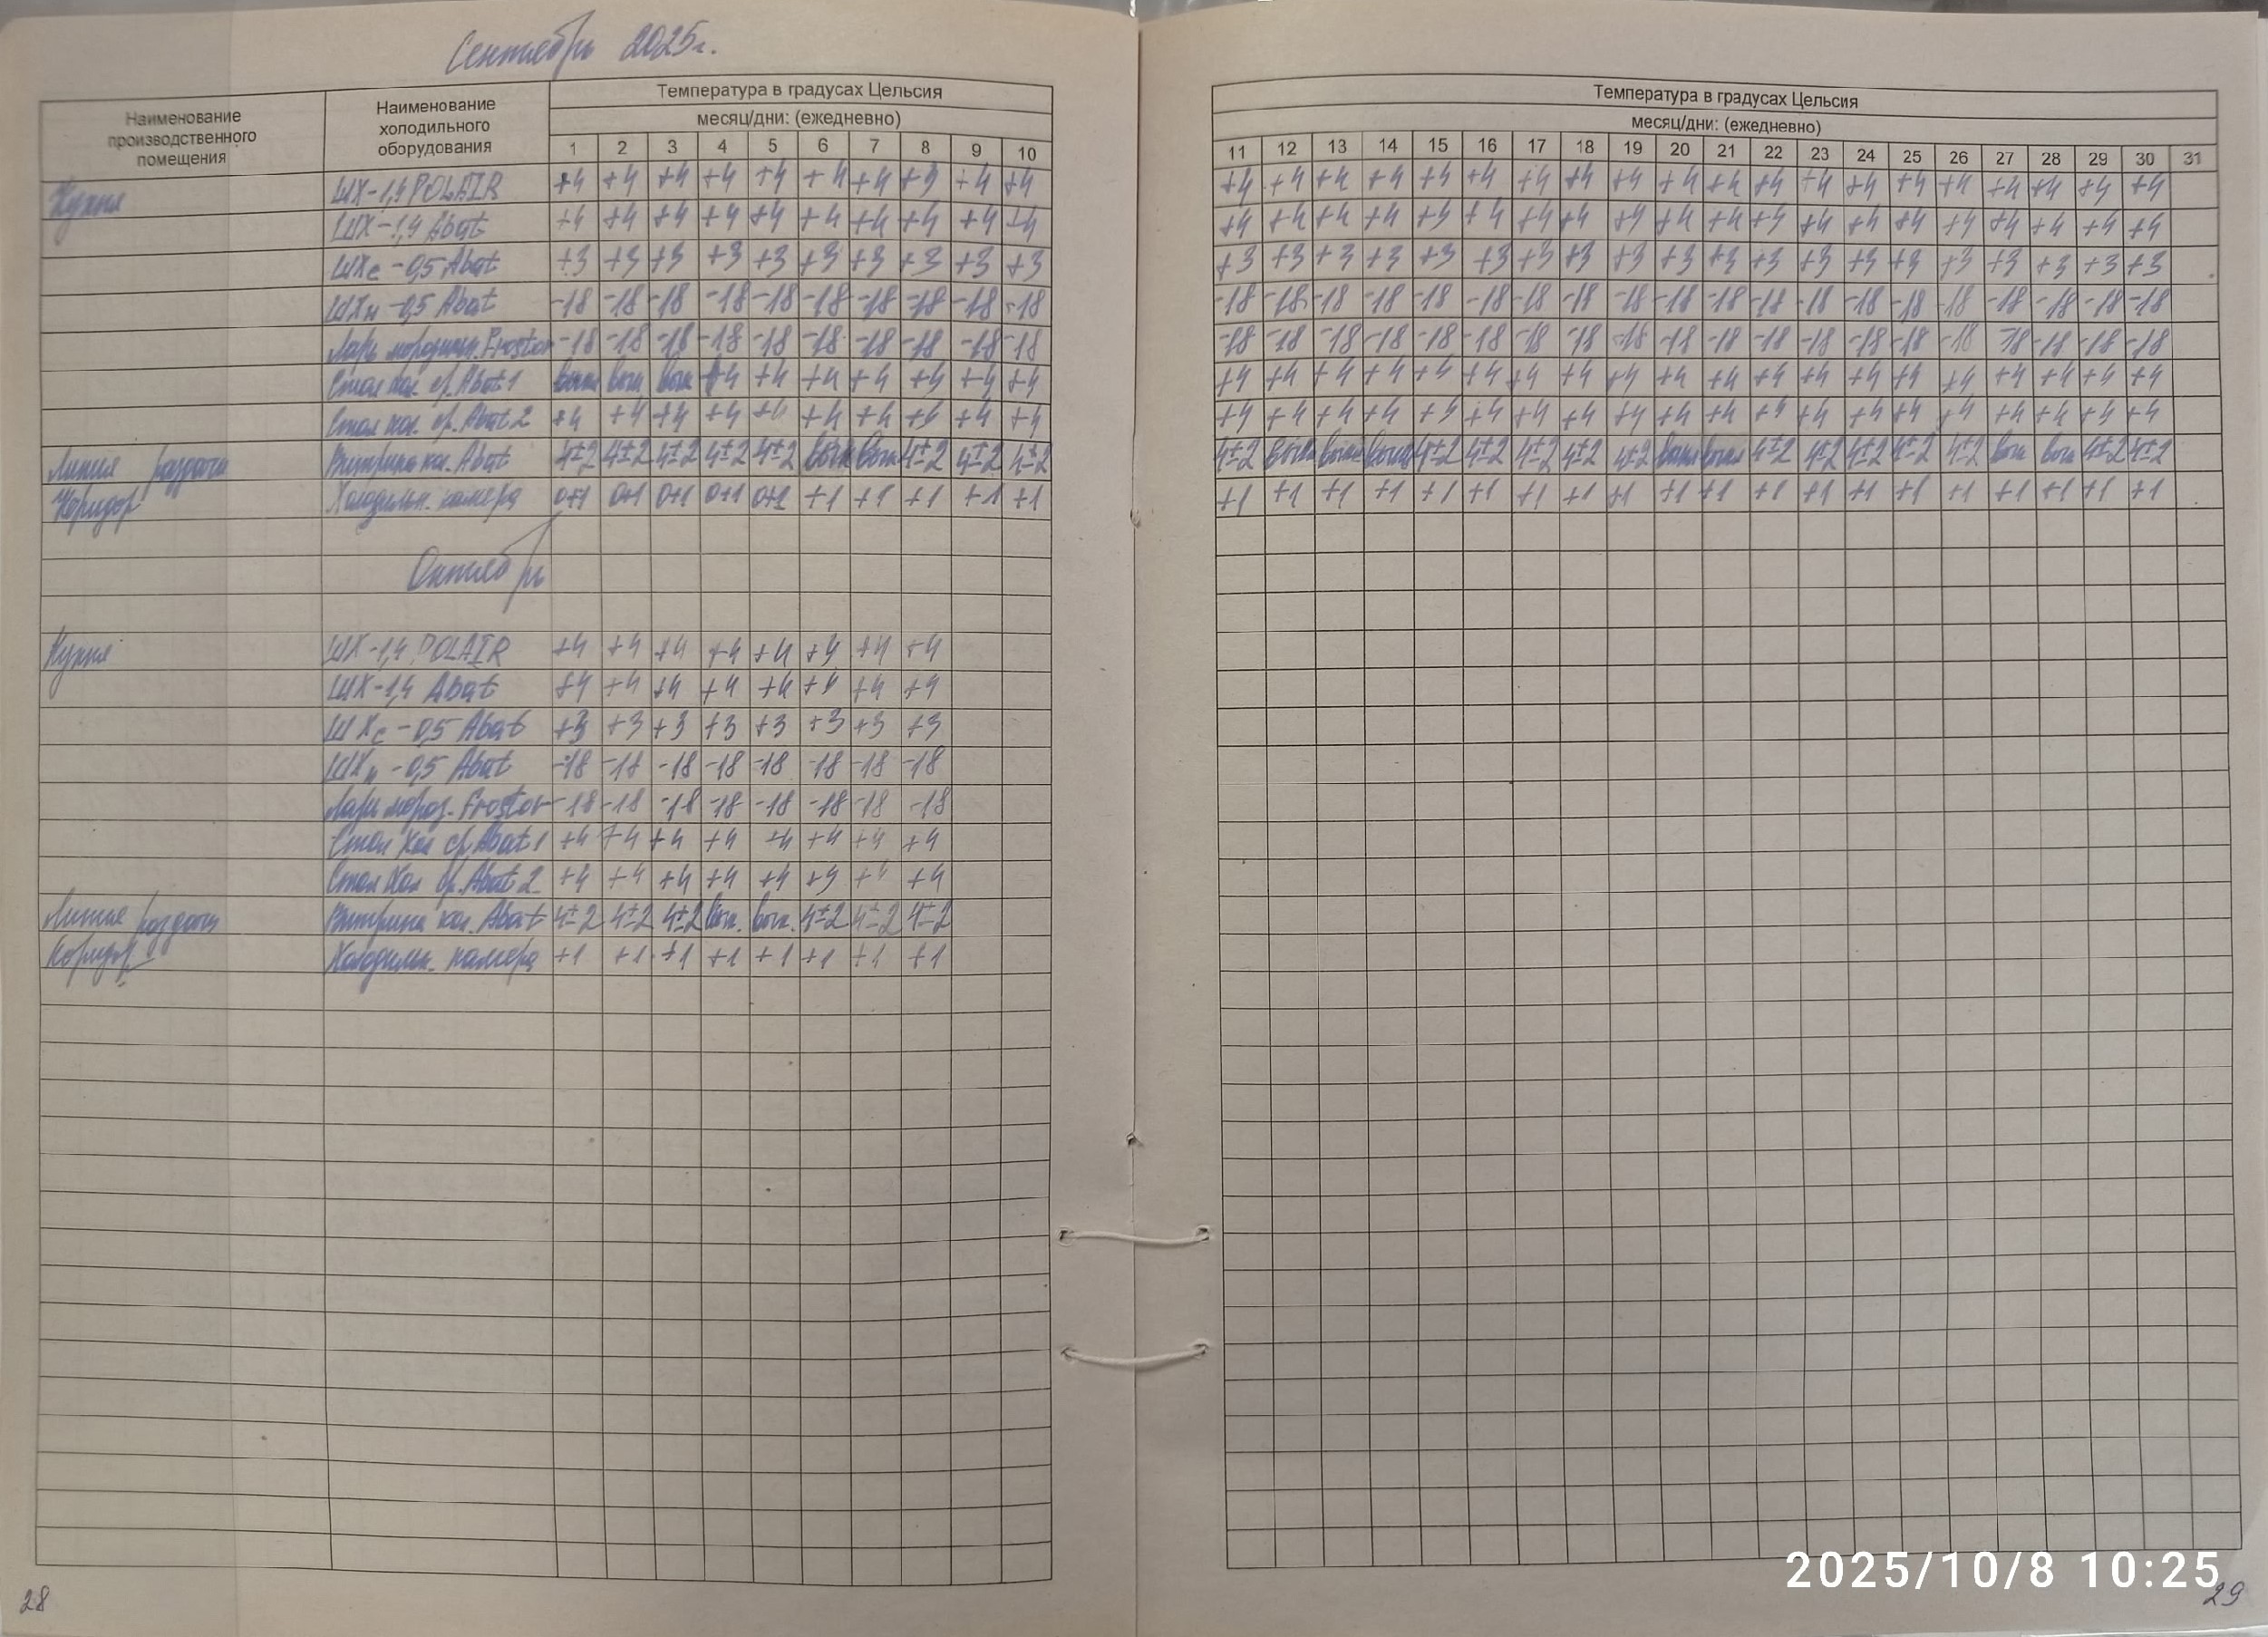 Сентябрь 2025г.
Наименование производственного помещения
Наименование холодильного оборудования
Температура в градусах Цельсия
месяц/дни: (ежедневно)
1 2 3 4 5 6 7 8 9 10
Температура в градусах Цельсия
месяц/дни: (ежедневно)
11 12 13 14 15 16 17 18 19 20 21 22 23 24 25 26 27 28 29 30 31
Кухня ШХ-1,4 POLAIR +4 +4 +4 +4 +4 +4 +4 +4 +4 +4 +4 +4 +4 +4 +4 +4 +4 +4 +4 +4 +4 +4 +4 +4 +4 +4 +4 +4 +4 +4
ШХ-1,4 Abat +4 +4 +4 +4 +4 +4 +4 +4 +4 +4 +4 +4 +4 +4 +4 +4 +4 +4 +4 +4 +4 +4 +4 +4 +4 +4 +4 +4 +4 +4
ШХс-0,5 Abat +3 +3 +3 +3 +3 +3 +3 +3 +3 +3 +3 +3 +3 +3 +3 +3 +3 +3 +3 +3 +3 +3 +3 +3 +3 +3 +3 +3 +3 +3
ШХн-0,5 Abat -18 -18 -18 -18 -18 -18 -18 -18 -18 -18 -18 -18 -18 -18 -18 -18 -18 -18 -18 -18 -18 -18 -18 -18 -18 -18 -18 -18 -18 -18
Ларь морозильн. Frostor -18 -18 -18 -18 -18 -18 -18 -18 -18 -18 -18 -18 -18 -18 -18 -18 -18 -18 -18 -18 -18 -18 -18 -18 -18 -18 -18 -18 -18 -18
Стол хол. ср. Abat 1 выкл выкл выкл +4 +4 +4 +4 +4 +4 +4 +4 +4 +4 +4 +4 +4 +4 +4 +4 +4 +4 +4 +4 +4 +4 +4 +4 +4 +4 +4
Стол хол. ср. Abat 2 +4 +4 +4 +4 +4 +4 +4 +4 +4 +4 +4 +4 +4 +4 +4 +4 +4 +4 +4 +4 +4 +4 +4 +4 +4 +4 +4 +4 +4 +4
Линия раздачи Витрина хол. Abat 4±2 4±2 4±2 4±2 4±2 выкл выкл 4±2 4±2 4±2 4±2 выкл выкл выкл 4±2 4±2 4±2 4±2 4±2 выкл выкл 4±2 4±2 4±2 4±2 4±2 выкл выкл 4±2 4±2
Коридор Холодильн. камера 0+1 0+1 0+1 0+1 0+1 +1 +1 +1 +1 +1 +1 +1 +1 +1 +1 +1 +1 +1 +1 +1 +1 +1 +1 +1 +1 +1 +1 +1 +1 +1
Октябрь
Кухня ШХ-1,4 POLAIR +4 +4 +4 +4 +4 +4 +4 +4
ШХ-1,4 Abat +4 +4 +4 +4 +4 +4 +4 +4
ШХс-0,5 Abat +3 +3 +3 +3 +3 +3 +3 +3
ШХн-0,5 Abat -18 -18 -18 -18 -18 -18 -18 -18
Ларь мороз. Frostor -18 -18 -18 -18 -18 -18 -18 -18
Стол Хол ср. Abat 1 +4 +4 +4 +4 +4 +4 +4 +4
Стол Хол ср. Abat 2 +4 +4 +4 +4 +4 +4 +4 +4
Линия раздачи Витрина хол. Abat 4±2 4±2 4±2 выкл. выкл. 4±2 4±2 4±2
Коридор Холодильн. камера +1 +1 +1 +1 +1 +1 +1 +1
28
2025/10/8 10:25
29